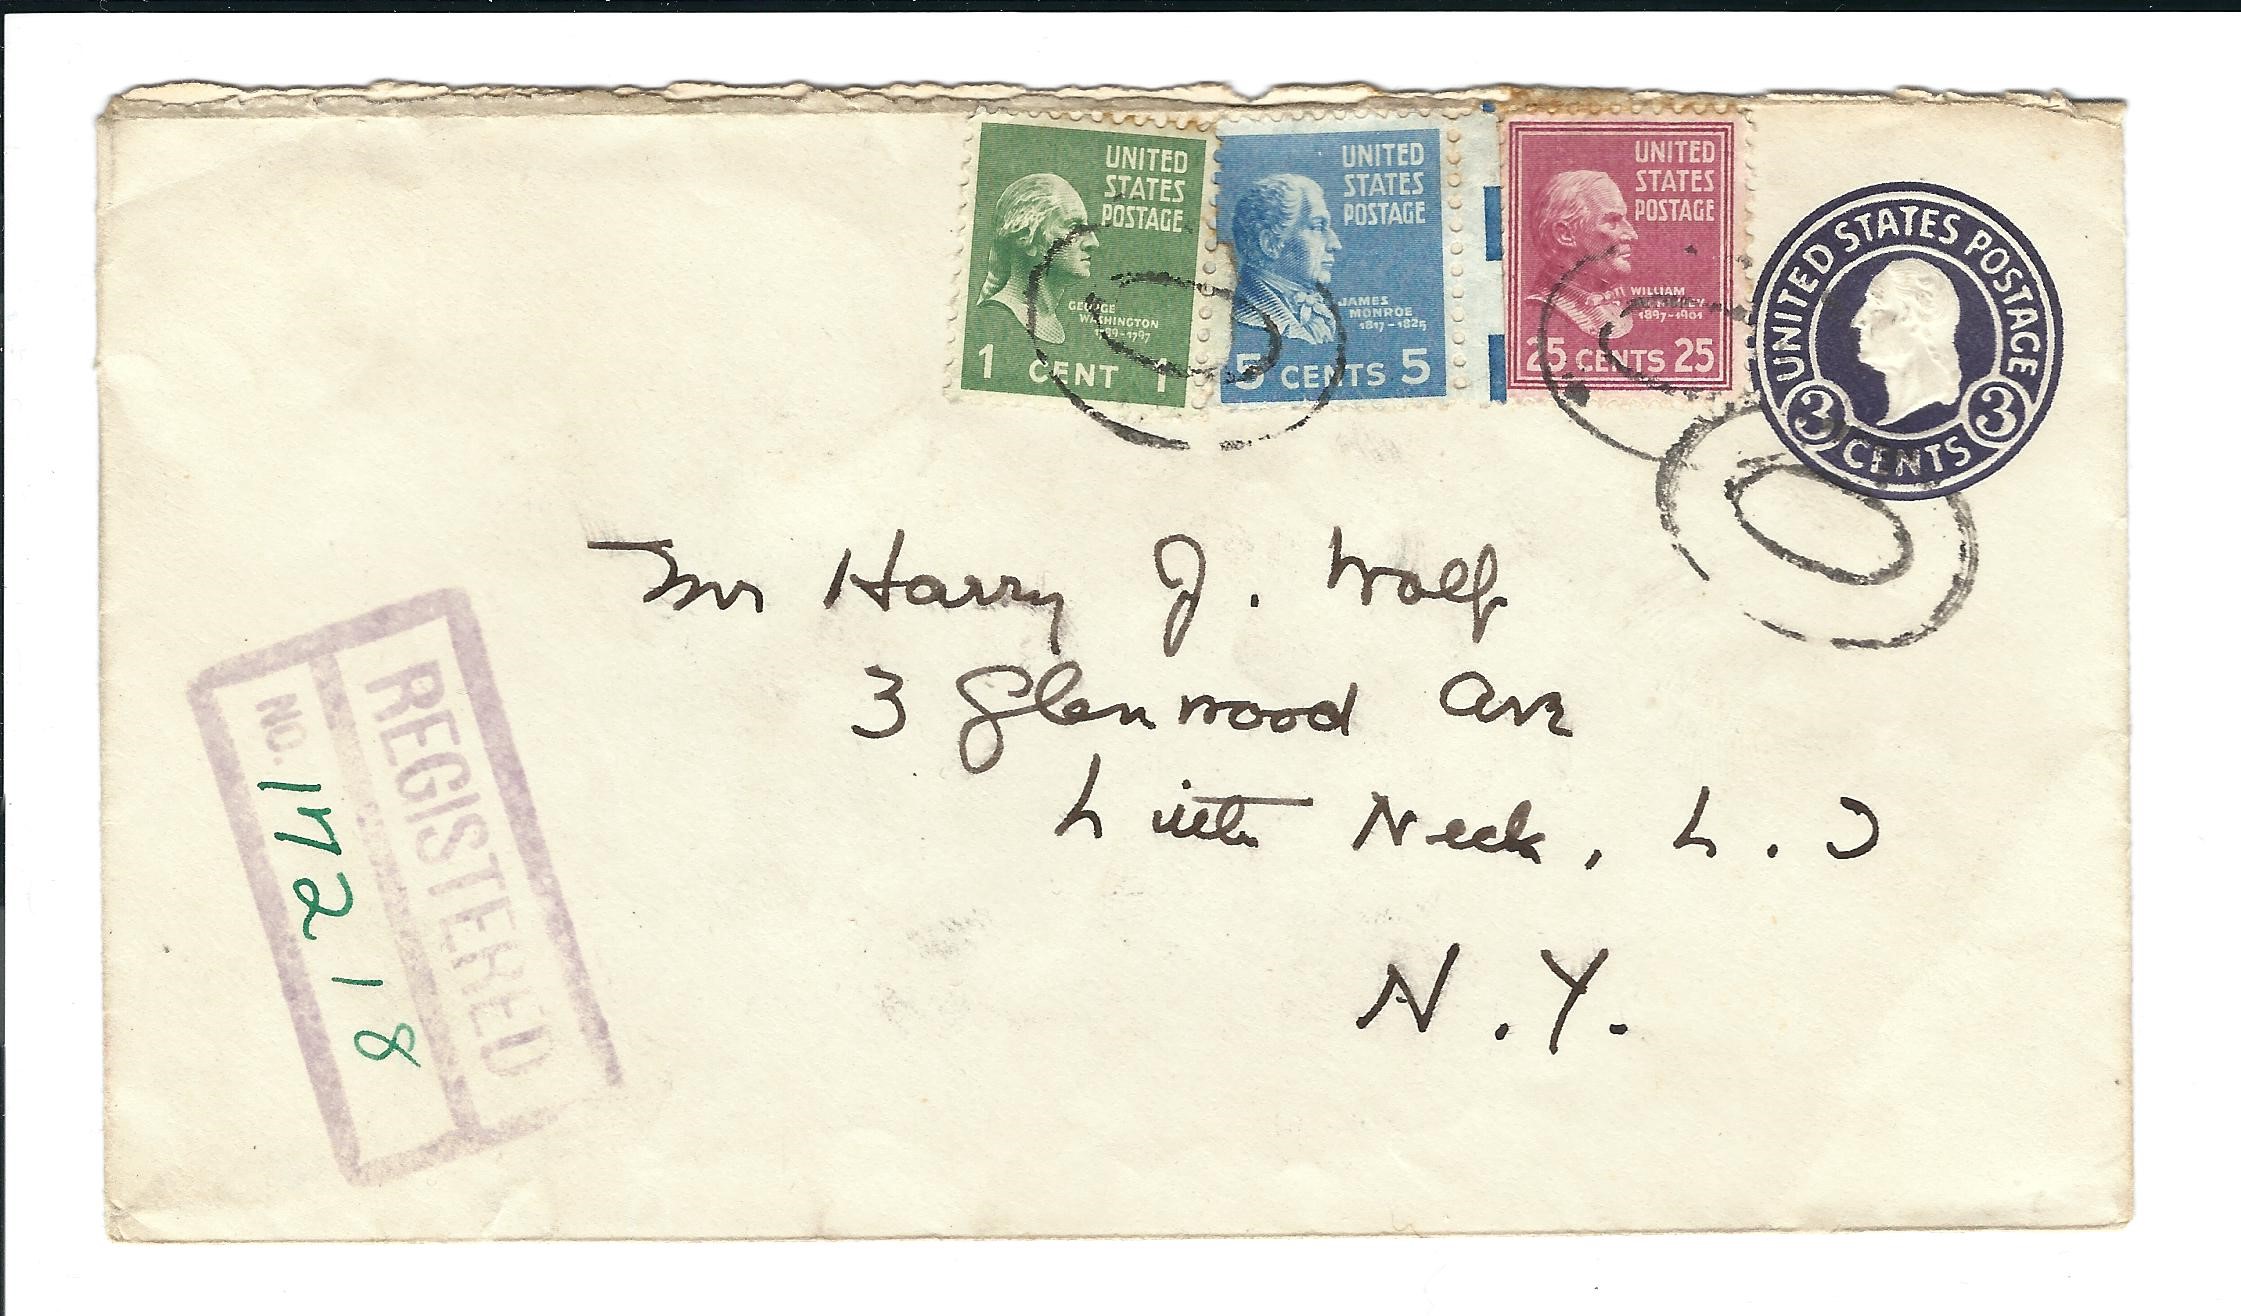 UNITED
STATES
POSTAGE
GEORGE
WASHINGTON
1789-1797
1 CENT 1
UNITED
STATES
POSTAGE
JAMES
MONROE
1817-1825
5 CENTS 5
UNITED
STATES
POSTAGE
WILLIAM
McKINLEY
1897-1901
25 CENTS 25
UNITED STATES POSTAGE
3 CENTS 3
Mr Harry J. Wolf
3 Glenwood Ave
Little Neck, L. I
N.Y.
REGISTERED
NO. 17218